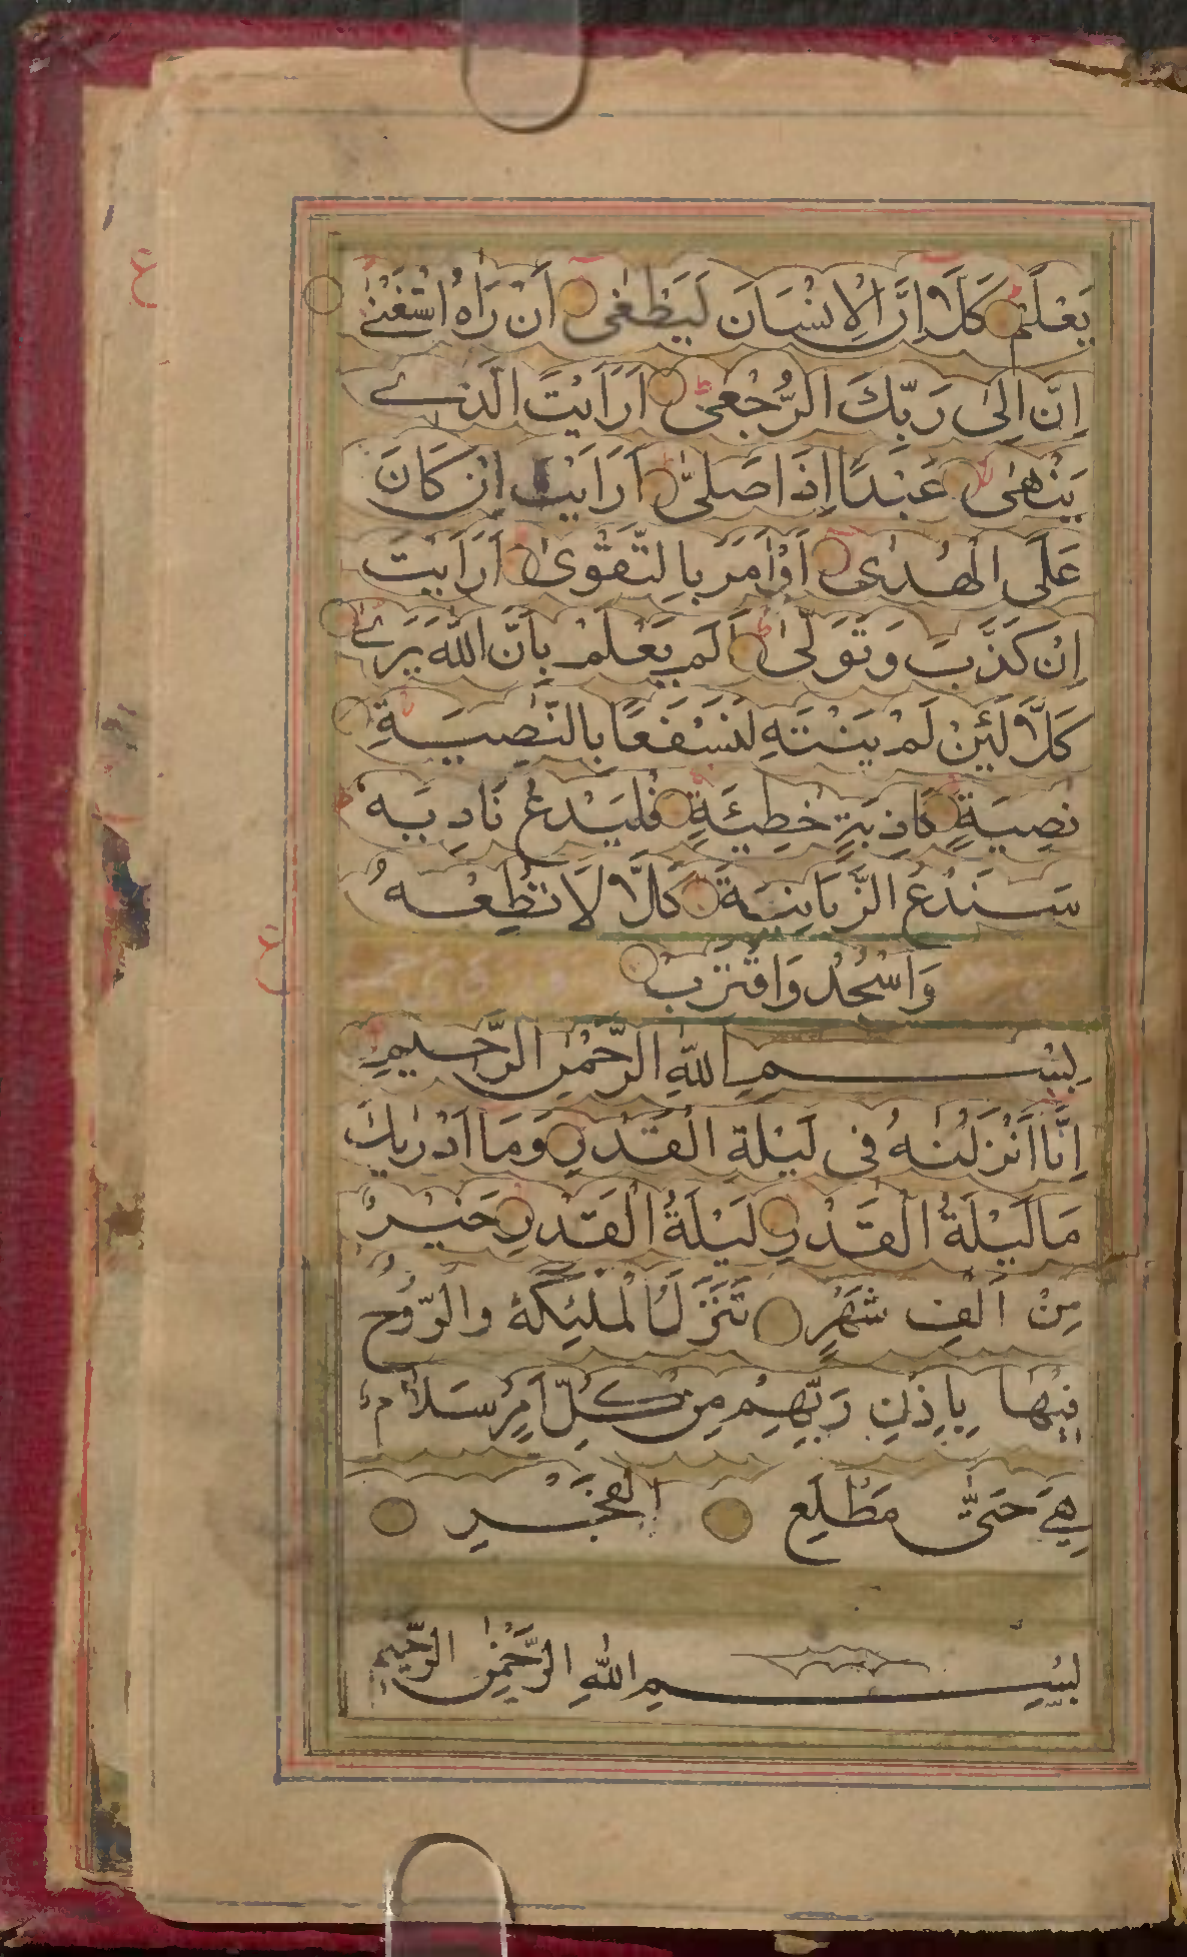 يَعْلَمْ كَلَّا اِنَّ الْاِنْسَانَ لَيَطْغٰى اَنْ رَاٰهُ اسْتَغْنٰى
اِنَّ اِلٰى رَبِّكَ الرُّجْعٰى اَرَاَيْتَ الَّذِے
يَنْهٰى عَبْدًا اِذَا صَلّٰى اَرَاَيْتَ اِنْ كَانَ
عَلَى الْهُدٰى اَوْ اَمَرَ بِالتَّقْوٰى اَرَاَيْتَ
اِنْ كَذَّبَ وَتَوَلّٰى اَلَمْ يَعْلَمْ بِاَنَّ اللّٰهَ يَرٰے
كَلَّا لَئِنْ لَمْ يَنْتَهِ لَنَسْفَعًا بِالنَّصِيَةِ
نَصِيَةٍ كَاذِبَةٍ خَطِيْئَةٍ فَلْيَدْعُ نَادِيَه
سَنَدْعُ الزَّبَانِيَةَ كَلَّا لَا تُطِعْهُ
وَاسْجُدْ وَاقْتَرِبْ
بِسْمِ اللّٰهِ الرَّحْمٰنِ الرَّحِيمِ
اِنَّا اَنْزَلْنٰهُ فِى لَيْلَةِ الْقَدْرِ وَمَا اَدْرٰىكَ
مَا لَيْلَةُ الْقَدْرِ لَيْلَةُ الْقَدْرِ خَيْرٌ
مِنْ اَلْفِ شَهْرٍ تَنَزَّلُ الْمَلٰئِكَةُ وَالرُّوْحُ
فِيْهَا بِاِذْنِ رَبِّهِمْ مِنْ كُلِّ اَمْرٍ سَلَامٌ
هِىَ حَتّٰى مَطْلَعِ الْفَجْرِ
بِسْمِ اللّٰهِ الرَّحْمٰنِ الرَّحِيمِ
ع
ع